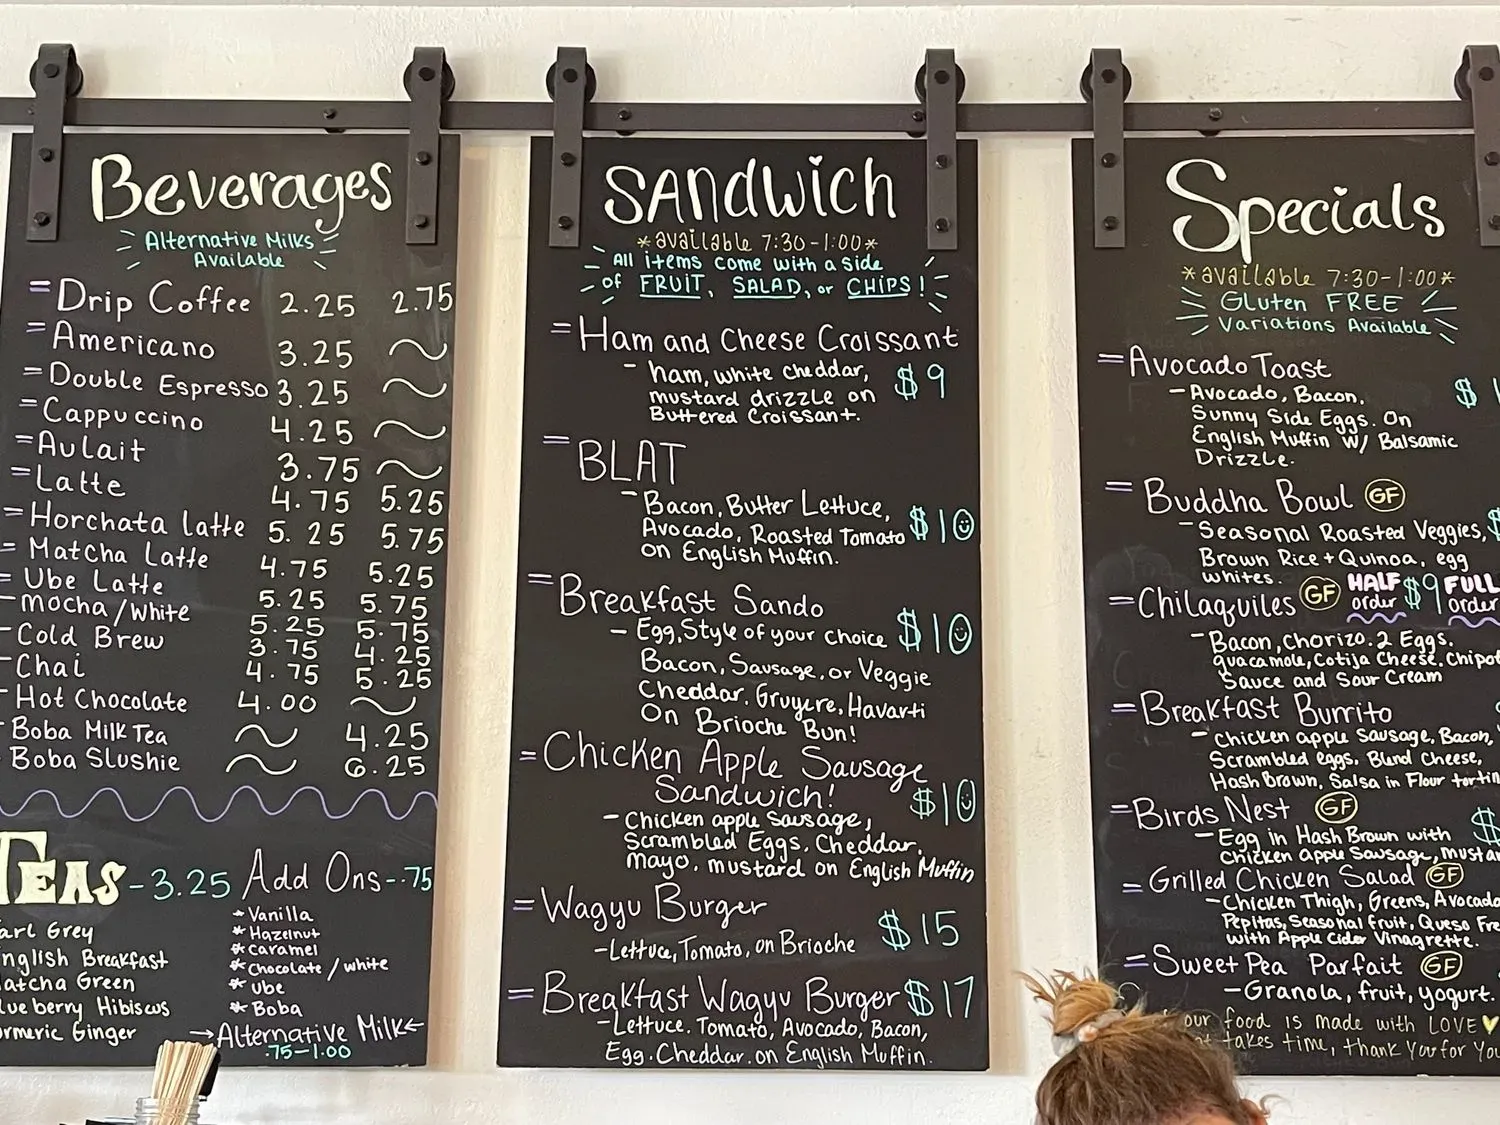 Beverages
Alternative Milks
Available
= Drip Coffee 2.25 2.75
= Americano 3.25 ~
= Double Espresso 3.25 ~
= Cappuccino 4.25 ~
= Aulait 3.75 ~
= Latte 4.75 5.25
= Horchata latte 5.25 5.75
= Matcha Latte 4.75 5.25
= Ube Latte 5.25 5.75
- mocha/white 5.25 5.75
- Cold Brew 3.75 4.25
- Chai 4.75 5.25
- Hot Chocolate 4.00 ~
- Boba Milk Tea ~ 4.25
- Boba Slushie ~ 6.25
TEAS - 3.25
arl Grey
nglish Breakfast
atcha Green
lueberry Hibiscus
urmeric Ginger
Add Ons - .75
* Vanilla
* Hazelnut
* caramel
* Chocolate / white
* ube
* Boba
→ Alternative Milk ←
.75-1.00
SANdwich
*available 7:30-1:00*
All items come with a side
of FRUIT, SALAD, or CHIPS!
= Ham and Cheese Croissant
- ham, white cheddar, $9
mustard drizzle on
Buttered Croissant.
= BLAT
- Bacon, Butter Lettuce,
Avocado, Roasted Tomato $10
on English Muffin.
= Breakfast Sando
- Egg, Style of your choice $10
Bacon, Sausage, or Veggie
Cheddar, Gruyere, Havarti
On Brioche Bun!
= Chicken Apple Sausage
Sandwich! $10
- Chicken apple Sausage,
Scrambled Eggs, Cheddar,
mayo, mustard on English Muffin
= Wagyu Burger
- Lettuce, Tomato, on Brioche $15
= Breakfast Wagyu Burger $17
- Lettuce, Tomato, Avocado, Bacon,
Egg, Cheddar, on English Muffin.
Specials
*available 7:30-1:00*
Gluten FREE
Variations Available
= Avocado Toast
- Avocado, Bacon, $1
Sunny Side Eggs. On
English Muffin w/ Balsamic
Drizzle.
= Buddha Bowl GF
- Seasonal Roasted Veggies, $
Brown Rice + Quinoa, egg
whites.
= Chilaquiles GF HALF order $9 FULL order
- Bacon, Chorizo, 2 Eggs.
guacamole, Cotija Cheese, Chipot
Sauce and Sour Cream
= Breakfast Burrito
- Chicken apple Sausage, Bacon,
Scrambled eggs, Blend Cheese,
Hash Brown, Salsa in Flour tortil
= Birds Nest GF
- Egg in Hash Brown with $
Chicken Apple Sausage, Mustar
= Grilled Chicken Salad GF
- Chicken Thigh, Greens, Avocado
Pepitas, Seasonal fruit, Queso Fre
with Apple Cider Vinagrette.
= Sweet Pea Parfait GF
- Granola, fruit, yogurt.
our food is made with LOVE
takes time, thank You for You